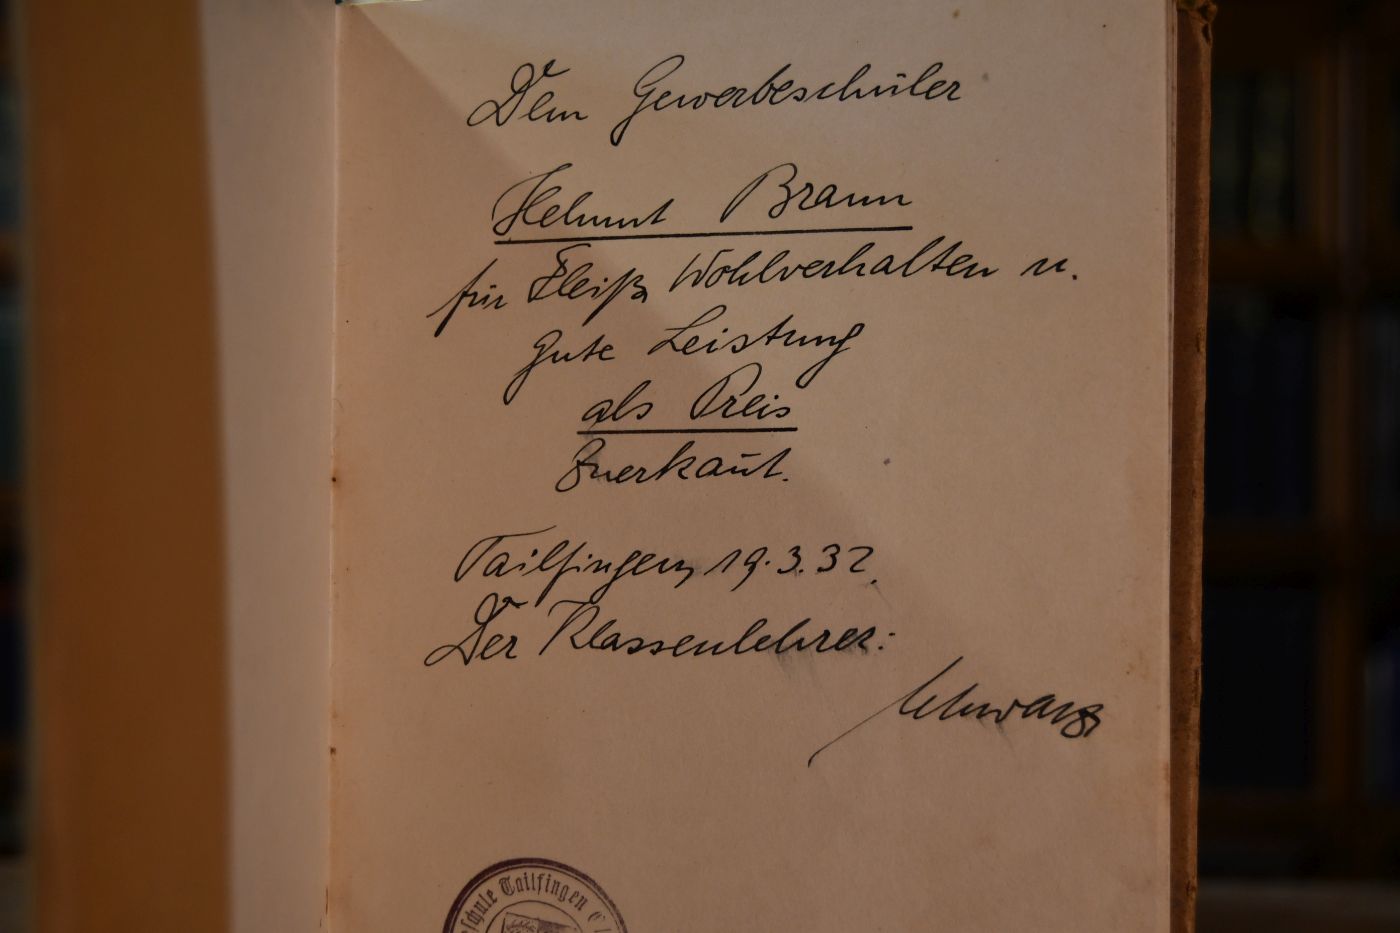 Dem Gewerbeschüler
Helmut Braun
für Fleiß, Wohlverhalten u.
gute Leistung
als Preis
Zuerkañt.
Tailfingen, 19.3.32.
Der Klassenlehrer:
Schwarz
schule Tailfingen